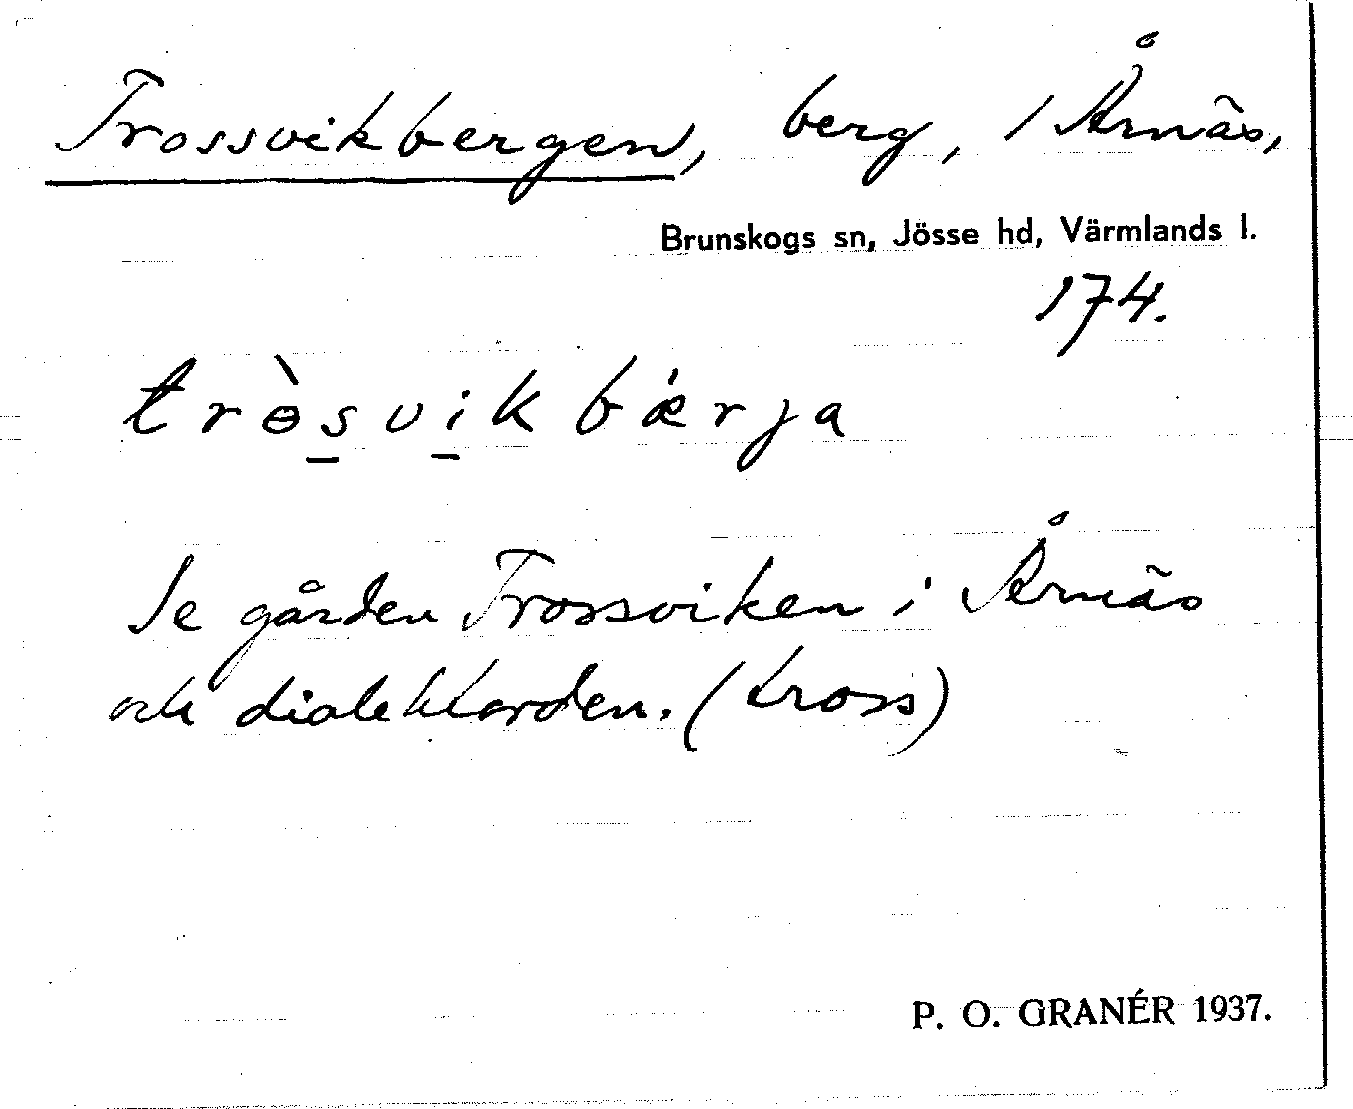 Trossvikbergen, berg, i Årnäs,
Brunskogs sn, Jösse hd, Värmlands l.
174.
trɵ̀s̠vi̠kbǽrja
Se gården Trossviken i Årnäs
och dialektorden. (tross)
P. O. GRANÉR 1937.